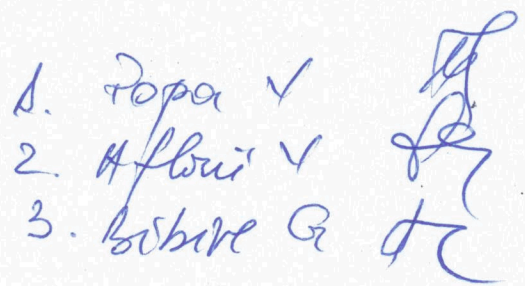 1. Popa V
2. Afloni V
3. Bibire G